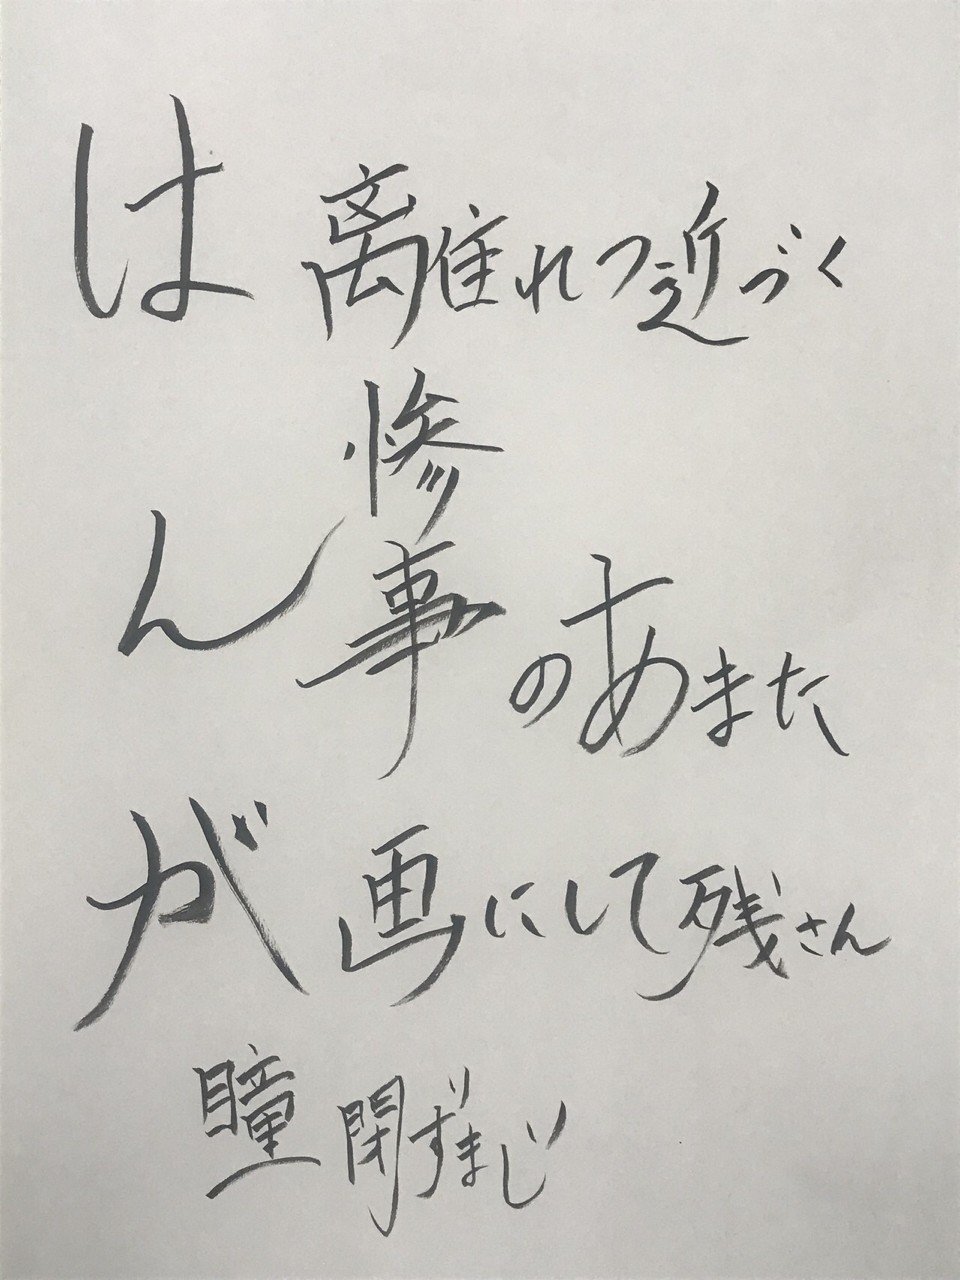 は 離れつ近づく
ん 惨事のあまた
が 画にして残さん
瞳 閉ずまじ